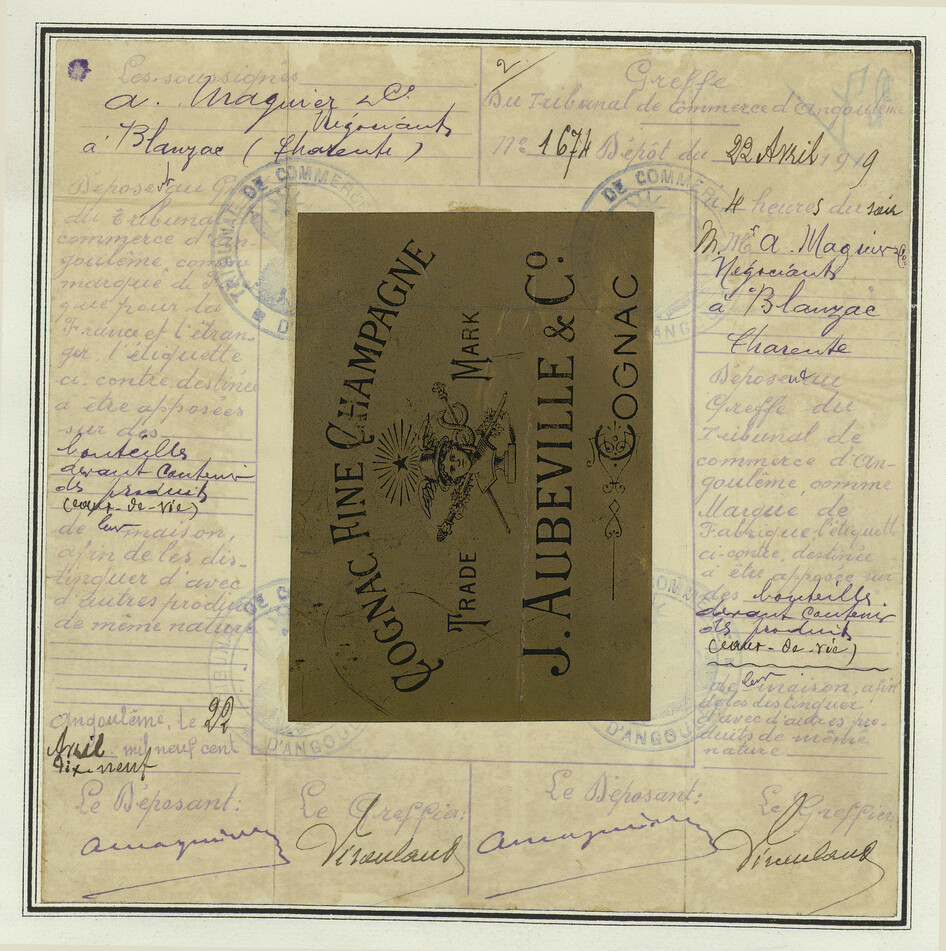 Les soussignés
A. Maguier & Cie
Négociants
à Blanzac (Charente)
Déposent au Gr
du Tribunal
commerce d'An-
goulême comme
marque de F
que pour la
France et l'étran-
ger, l'étiquette
ci-contre destinée
à être apposées
sur des
bouteilles
devant contenir
des produits
(eaux-de-vie)
de leur maison,
afin de les dis-
tinguer d'avec
d'autres produits
de même nature
Angoulême, le 22
Avril mil neuf cent
dix-neuf
Le Déposant:
Le Greffier:
2
Greffe
Du Tribunal de Commerce d'Angoulême
No 1674 Dépôt du 22 Avril 1919
à 4 heures du soir
M.Mrs A. Maguier & Cie
Négociants
à Blanzac
Charente
Déposent au
Greffe du
Tribunal de
commerce d'An-
goulême comme
Marque de
Fabrique, l'étiquette
ci-contre, destinée
à être apposée sur
des bouteilles
devant contenir
des produits
(eaux-de-vie)
de leur maison, afin
de les distinguer
d'avec d'autres pro-
duits de même
nature
Le Déposant:
Le Greffier
COGNAC FINE CHAMPAGNE
TRADE MARK
J. AUBEVILLE & Co.
COGNAC
TRIBUNAL DE COMMERCE
DE COMMERCE
D'ANGOU